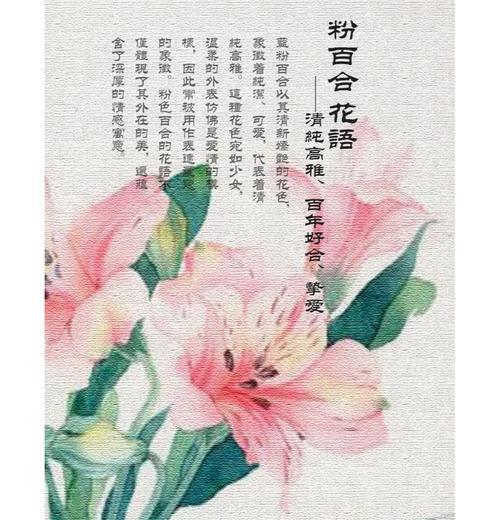 粉百合 花語
——清純高雅、百年好合、摯愛
藍粉百合以其清新嬌艷的花色,
象徵着純潔、可愛,代表着清
純高雅。這種花色宛如少女,
溫柔的外表仿佛是愛情的模
樣,因此常被用作表達愛意
的象徵。粉色百合的花語不
僅體現了其外在的美,還蘊
含了深厚的情感寓意。